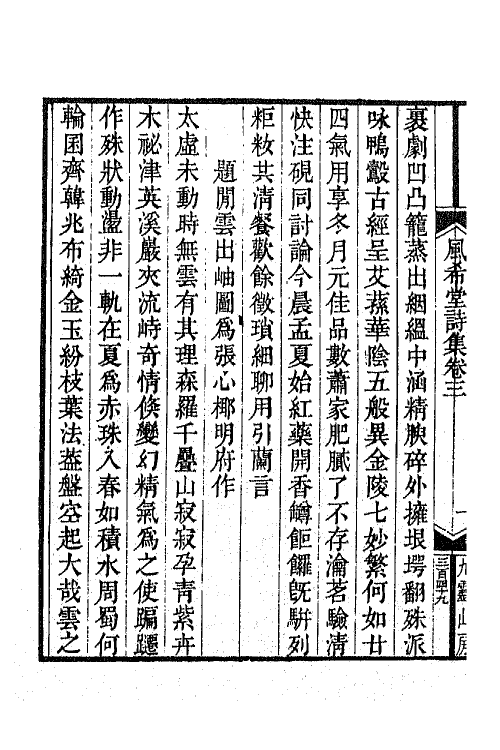 風希堂詩集卷三
一
九靈山房
三百四十九
裹劇凹凸籠蒸出絪縕中涵精腴碎外擁垠堮翻殊派
咏鴨觳古經呈艾蕪華陰五般異金陵七妙繁何如廿
四氣用享冬月元佳品數蕭家肥膩了不存瀹茗驗淸
快注硯同討論今晨孟夏始紅藥開香罇飽饠旣駢列
粔籹共淸餐歡餘徵瑣細聊用引蘭言
題閒雲出岫圖爲張心椰明府作
太虛未動時無雲有其理森羅千疊山寂寂孕靑紫卉
木祕津英溪巖夾流峙奇情倏變幻精氣爲之使蹁躚
作殊狀動盪非一軌在夏爲赤珠入春如積水周蜀何
輪囷齊韓兆布綺金玉紛枝葉法葢盤空起大哉雲之